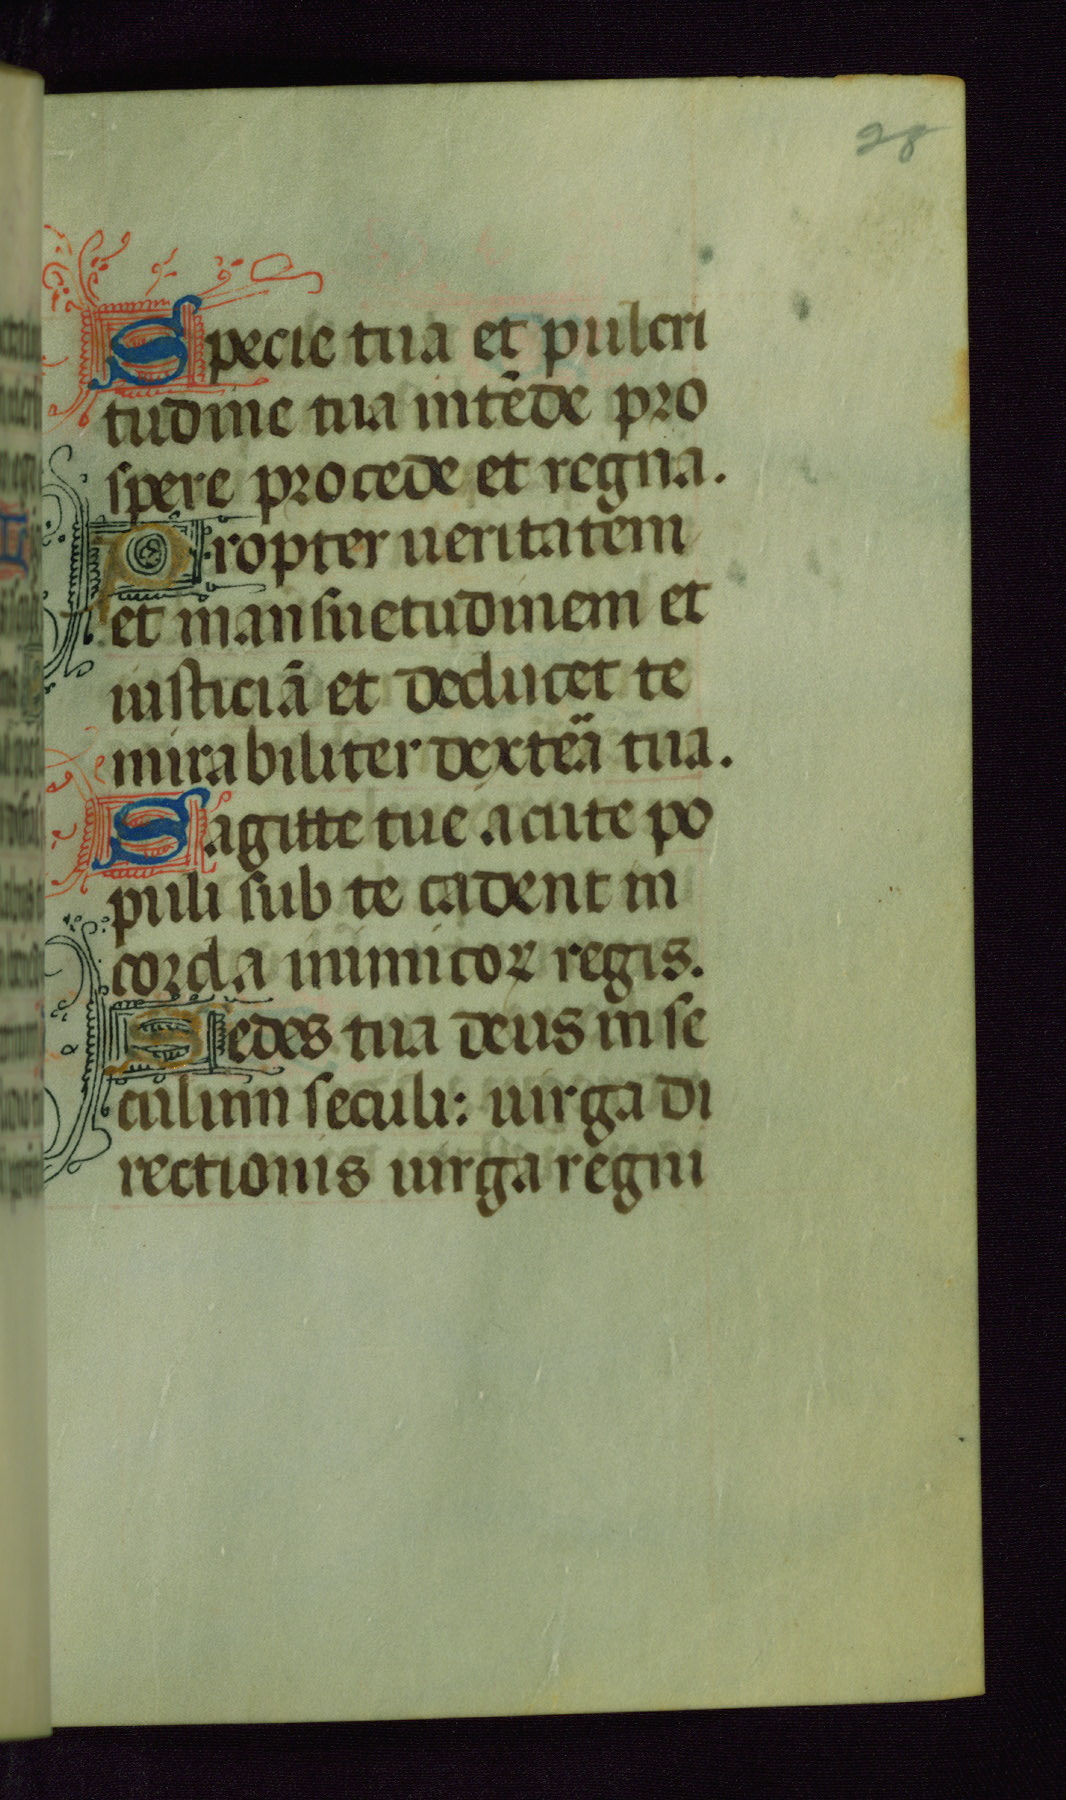 28
Specie tua et pulcri
tudine tua intẽde pro
spere procede et regna.
Propter ueritatem
et mansuetudinem et
iusticiã et deducet te
mirabiliter dextẽa tua.
Sagitte tue acute po
puli sub te cadent in
corda inimicoꝝ regis.
Sedes tua deus in se
culum seculi: uirga di
rectionis uirga regni